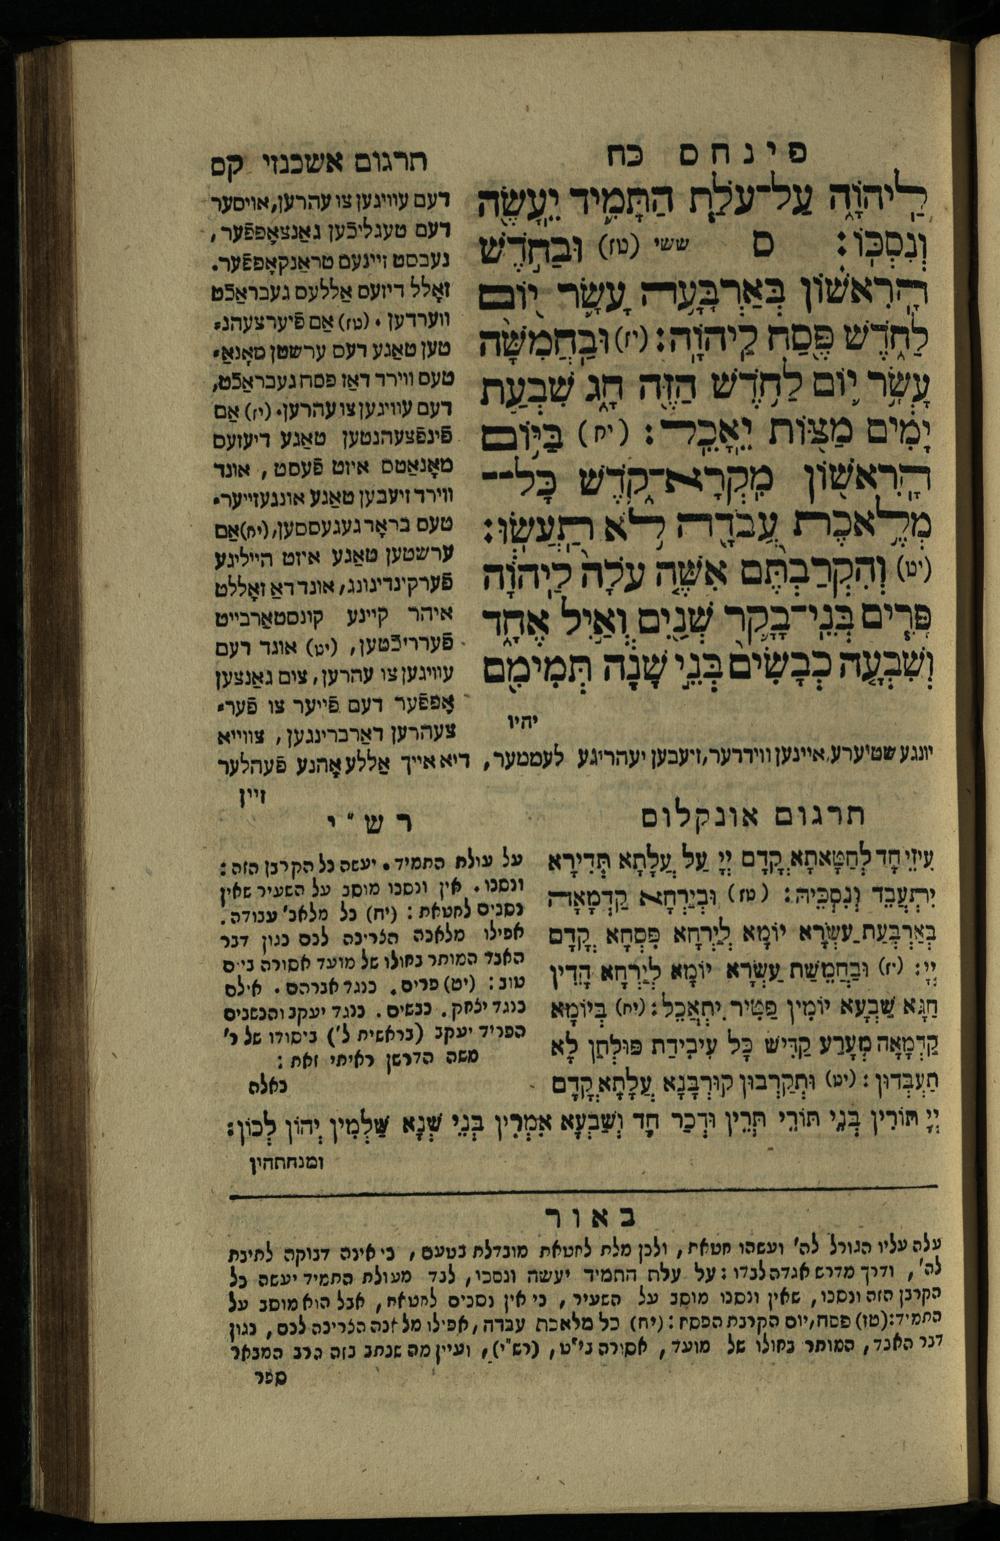 פינחס כח
לַֽיהוָ֑ה עַל־עֹלַ֧ת הַתָּמִ֛יד יֵעָשֶׂ֖ה
וְנִסְכּֽוֹ׃ ס ששי (טז) וּבַחֹ֣דֶשׁ
הָֽרִאשׁ֗וֹן בְּאַרְבָּעָ֥ה עָשָׂ֛ר י֖וֹם
לַחֹ֑דֶשׁ פֶּ֖סַח לַֽיהוָֽה׃ (יז) וּבַֽחֲמִשָּׁ֨ה
עָשָׂ֥ר י֛וֹם לַחֹ֥דֶשׁ הַזֶּ֖ה חָ֑ג שִׁבְעַ֣ת
יָמִ֔ים מַצּ֖וֹת יֵֽאָכֵֽל׃ (יח) בַּיּ֥וֹם
הָֽרִאשׁ֖וֹן מִֽקְרָא־קֹ֑דֶשׁ כָּל־
מְלֶ֥אכֶת עֲבֹדָ֖ה לֹ֥א תַֽעֲשֽׂוּ׃
(יט) וְהִקְרַבְתֶּ֨ם אִשֶּׁ֤ה עֹלָה֙ לַֽיהוָ֔ה
פָּרִ֧ים בְּנֵֽי־בָקָ֛ר שְׁנַ֖יִם וְאַ֣יִל אֶחָ֑ד
וְשִׁבְעָ֤ה כְבָשִׂים֙ בְּנֵ֣י שָׁנָ֔ה תְּמִימִ֖ם
יהיו
תרגום אשכנזי קס
דעם עוויגען צו עהרען, אויסער
דעם טעגליכֿען גאַנצאָפפֿער,
נעבסט זיינעם טראַנקאָפפֿער.
זאָלל דיזעם אַללעס געבראַכֿט
ווערדען. (טז) אַם פֿיערצעהנ⸗
טען טאַגע דעס ערשטן מאָנאַ⸗
טעס ווירד דאַז פסח געבראַכֿט,
דעם עוויגען צו עהרען. (יז) אַם
פֿינפֿצעהנטען טאַגע דיעזעס
מאָנאַטס איזט פֿעסט, אונד
ווירד זיעבען טאַגע אונגעזייער⸗
טעס בראָד געגעססען, (יח) אַם
ערשטען טאַגע איזט הייליגע
פֿערקינדיגונג, אונד דאַ זאָללט
איהר קיינע קונסטאַרבייט
פֿערריכֿטען, (יט) אונד דעם
עוויגען צו עהרען, צום גאַנצען
אָפפֿער דעם פֿייער צו פֿער⸗
צעהרען דאַרברינגען, צווייא
יונגע שטיערע, איינען ווידדער, זיעבען יעהריגע לעממער, דיא אייך אַללע אָהנע פֿעהלער
זיין
תרגום אונקלוס
עִיזֵי חָד לְחַטָּאתָא קֳדָם יְיָ עַל עֲלָתָא תְּדִירָא
יִתְעֲבֵד וְנִסְכֵּיהּ׃ (טז) וּבְיַרְחָא קַדְמָאָה
בְּאַרְבְּעַת עַשְׂרָא יוֹמָא לְיַרְחָא פִּסְחָא קֳדָם
יְיָ׃ (יז) וּבַחֲמֵשַׁת עַשְׂרָא יוֹמָא לְיַרְחָא הָדֵין
חַגָּא שַׁבְעָא יוֹמִין פַּטִּיר יִתְאֲכֵל׃ (יח) בְּיוֹמָא
קַדְמָאָה מְעָרַע קַדִּישׁ כָּל עִיבִידַת פּוּלְחַן לָא
תַעְבְּדוּן׃ (יט) וּתְקָרְבוּן קוּרְבָּנָא עֲלָתָא קֳדָם
יְיָ תּוֹרִין בְּנֵי תוֹרֵי תְּרֵין וּדְכַר חָד וְשַׁבְעָא אִמְּרִין בְּנֵי שְׁנָא שַׁלְמִין יְהוֹן לְכוֹן׃
ומנחתהון
רש"י
על עולת התמיד. יעשה כל הקרבן הזה:
ונסכו. אין ונסכו מוסב על השעיר שאין
נסכים לחטאת: (יח) כל מלאכ' עבודה.
אפילו מלאכה הצריכה לכם כגון דבר
האבד המותר בחולו של מועד אסורה ביום
טוב: (יט) פרים. כנגד אברהם. אילם
כנגד יצחק. כבשים. כנגד יעקב והכשבים
הפריד יעקב (בראשית ל') ביסודו של ר'
משה הדרשן ראיתי זאת:
כאלה
באור
עלה עליו הגורל לה' ועשהו חטאת, ולכן מלת לחטאת מובדלת בטעם, כי אינה דבוקה לתיבת
לה', ודרך מדרש אגדה לבדו: על עלת התמיד יעשה ונסכו, לבד מעולת התמיד יעשה כל
הקרבן הזה ונסכו, שאין ונסכו מוסב על השעיר, כי אין נסכים לחטאת, אבל הוא מוסב על
התמיד: (טז) פסח, יום הקרבת הפסח: (יח) כל מלאכת עבדה, אפילו מלאכה הצריכה לכם, כגון
דבר האבד, המותר בחולו של מועד, אסורה בי"ט, (רש"י), ועיין מה שכתב בזה הרב המבאר
ספר